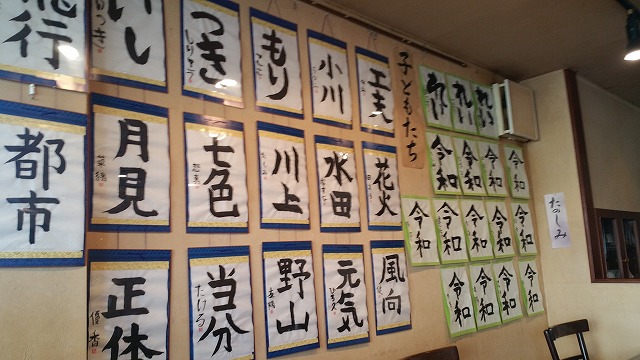 飛行
いし
つき
もり
小川
工夫
子どもたち
れい
れい
都市
月見
七色
川上
水田
花火
令和
令和
令和
令和
令和
令和
令和
令和
令和
たのしみ
正体
当分
たける
野山
元気
風向
令和
令和
令和
令和